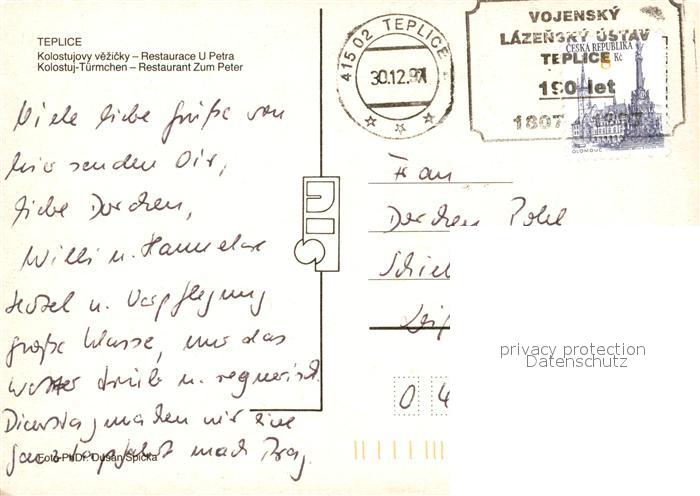 TEPLICE
Kolostujovy věžičky – Restaurace U Petra
Kolostuj-Türmchen – Restaurant Zum Peter
415 02 TEPLICE
30.12.97
VOJENSKÝ
LÁZEŇSKÝ ÚSTAV
TEPLICE
190 let
1807 1997
ČESKÁ REPUBLIKA
8 Kč
OLOMOUC
Viele liebe Grüße von
hier senden Dir,
liebe Dorchen,
Willi u. Hannelore
Hotel u. Verpflegung
große Klasse, nur das
Wetter trüb u. regnerisch.
Dienstag machen wir eine
Ganztagsfahrt nach Prag.
Foto PhDr. Dušan Spička
Frau
Dorchen Pohl
0 4
privacy protection
Datenschutz